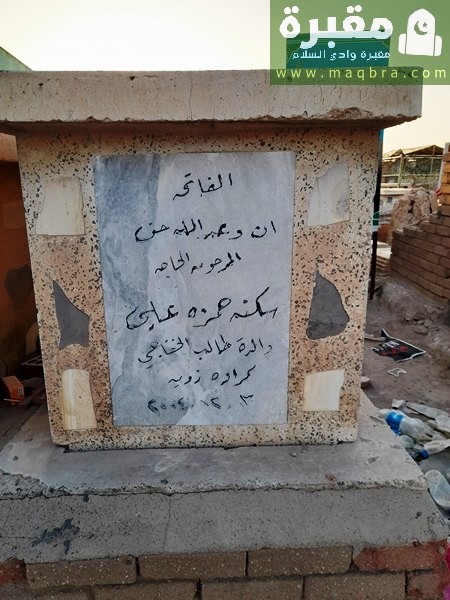 مقبرة
مقبرة وادي السلام
www.maqbra.com
الفاتحه
ان وعد الله حق
المرحومه الحاجه
سكنه حمزه علي
والدة طالب الخفاجي
٢٠٠٤/١٢/٣